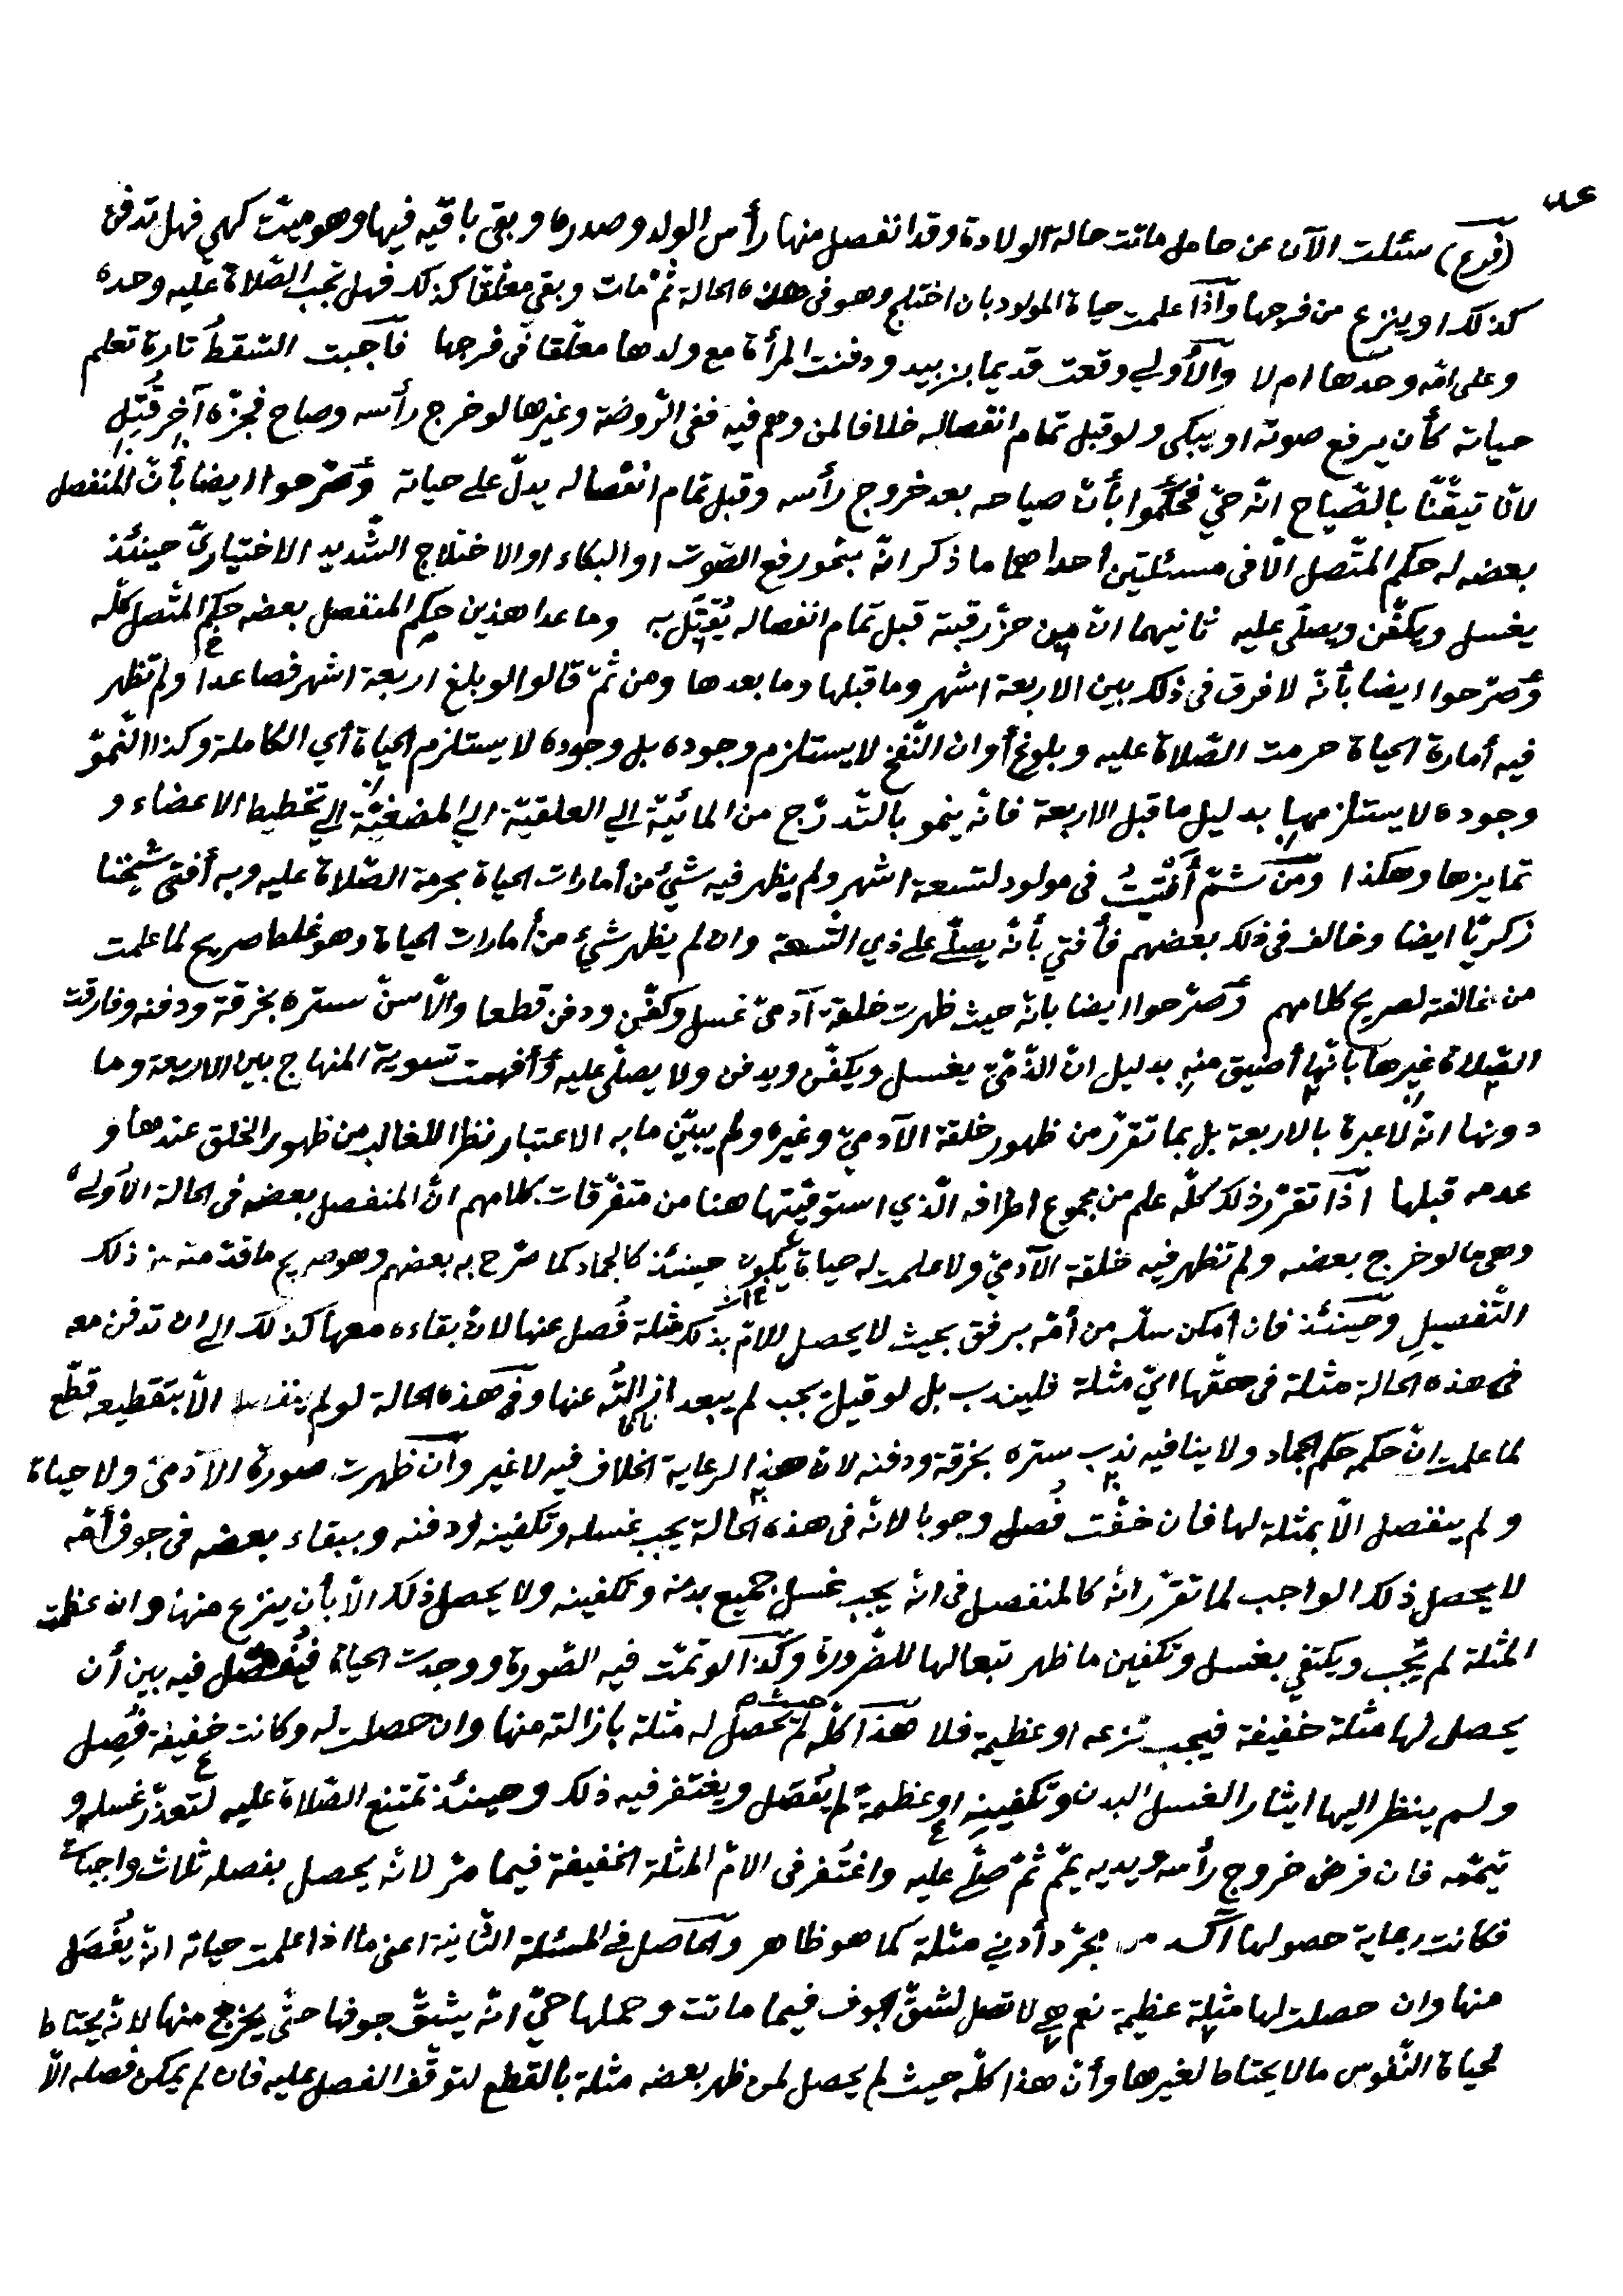 (فرع) سئلت الآن عن حامل ماتت حالة الولادة وقد انفصل منها رأس الولد وصدره وبقي باقيه فيها وهو ميت كهي فهل تدفن
كذلك او ينزع من فرجها وَاذا علمت حياة المولود بان اختلج وهو فى هذه الحالة ثمّ مات وبقي معلّقا كذلك فهل تجب الصّلاة عليه وحده
وعلى امّه وحدها ام لا وَالأولي وقعت قديما بزبيد ودفنت المرأة مع ولدها معلّقا فى فرجها فأجبت السّقط تارة تعلم
حياته كأن يرفع صوته او يبكى ولو قبل تمام انفصاله خلافا لمن وهم فيه ففى الرّوضة وغيرها لو خرج رأسه وصاح فجزّه آخر قُتِل
لانّا تيقّنّا بالصّياح انّه حيّ فحكموا بأنّ صياحه بعد خروج رأسه وقبل تمام انفصاله يدلّ على حياته وَصرّحوا ايضا بأنّ المنفصل
بعضه له حكم المتّصل الّا فى مسئلتين احداهما ما ذكر انّه بنحو رفع الصّوت او البكاء او الاختلاج الشّديد الاختياريّ حينئذ
يغسل ويكفّن ويصلّى عليه ثانيهما انّ من حزّ رقبته قبل تمام انفصاله يُقتل به وما عدا هذين حكم المنفصل بعضه حكم المتّصل كلّه
وَصرّحوا ايضا بأنّه لا فرق فى ذلك بين الاربعة اشهر وما قبلها وما بعدها ومن ثمّ قالوا لو بلغ اربعة اشهر فصاعدا ولم تظهر
فيه أمارة الحياة حرمت الصّلاة عليه وبلوغ أوان النّفخ لا يستلزم وجوده بل وجوده لا يستلزم الحياة أي الكاملة وكذا النّموّ
وجوده لا يستلزمها بدليل ما قبل الاربعة فانّه ينمو بالتّدرّج من المائيّة الى العلقيّة الى المضغيّة الى تخطيط الاعضاء و
تمايزها وهكذا وَمن ثمّ أفتيتُ فى مولود لتسعة اشهر ولم يظهر فيه شيئ من أمارات الحياة بحرمة الصّلاة عليه وبه أفتى شيخنا
زكريّا ايضا وخالف فى ذلك بعضهم فأفتي بأنّه يصلّى على ذي التّسعة وان لم يظهر شيئ من أمارات الحياة وهو غلط صريح لما علمت
من مخالفته لصريح كلامهم وَصرّحوا ايضا بانّه حيث ظهرت خلقة آدميّ غسل وكفّن ودفن قطعا وَالّا سنّ ستره بخرقة ودفنه وفارقت
الصّلاة غيرها بانّها أضيق منه بدليل انّ الذّمّيّ يغسل ويكفّن ويدفن ولا يصلّى عليه وَأفهمت تسوية المنهاج بين الاربعة وما
دونها انّه لا عبرة بالاربعة بل بما تقرّر من ظهور خلقة الآدميّ وغيره ولم يبيّن ما به الاعتبار نظرا للغالب من ظهور الخلق عندها و
عدمه قبلها اذا تقرّر ذلك كلّه علم من مجموع اطرافه الّذي استوفيتها هنا من متفرّقات كلامهم انّ المنفصل بعضه فى الحالة الأولى
وهى ما لو خرج بعضه ولم تظهر فيه خلقة الآدميّ ولا علمت له حياة يكون حينئذ كالجماد كما صرّح به بعضهم وهو صريح ما قدّمته من ذلك
التّفصيل وَحينئذ فان أمكن سلّه من أمّه برفق بحيث لا يحصل للامّ بذلك مثلة فُصل عنها لانّ بقاءه معها كذلك الى ان تدفن معه
فى هذه الحالة مثلة فى حقّها ايّ مثلة فليندب بل لو قيل يجب لم يبعد ازالته عنها وفى هذه الحالة لو لم ينفصل الّا بتقطيعه قطّع
لما علمت انّ حكمه حكم الجماد ولا ينافيه ندب ستره بخرقة ودفنه لانّ هذه الرعاية الخلاف فيه لا غير وَان ظهرت صورة الآدميّ ولا حياة
ولم ينفصل الّا بمثلة لها فان خفّت فُصل وجوبا لانّه فى هذه الحالة يجب غسله وتكفينه ودفنه وببقاء بعضه فى جوف أمّه
لا يحصل ذلك الواجب لما تقرّر انّه كالمنفصل فى انّه يجب غسل جميع بدنه وتكفينه ولا يحصل ذلك الّا بأن ينزع منها وان عظمت
المثلة لم يجب ويكتفي بغسل وتكفين ما ظهر تبعا لها للضّرورة وَكذا لو تمّت فيه الصّورة ووجدت الحياة فيُفصّل فيه بين أن
يحصل لها مثلة خفيفة فيجب نزعه او عظيمة فلا هذا كلّه حيث لم تحصل له مثلة بازالته منها وان حصلت له وكانت خفيفة فُصِل
ولم ينظر اليها ايثارا لغسل البدن وتكفينه او عظيمة لم يُفصَل ويغتفر فيه ذلك وحينئذ تمتنع الصّلاة عليه لتعذّر غسله و
تيمّمه فان فرض خروج رأسه ويديه يمّم ثمّ صلّى عليه واغتُفر فى الامّ المثلة الخفيفة فيما مرّ لانّه يحصل بفصله ثلاث واجبات
فكانت رعاية حصولها آكد من مجرّد أدني مثلة كما هو ظاهر وَالحاصل فى المسئلة الثّانية اعنى ما اذا علمت حياته انّه يُفصَل
منها وان حصلت لها مثلة عظيمة نعم هى لا تصل لشقّ الجوف فيما ماتت وحملها حيّ انّه يشقّ جوفها حتّى يخرج منها لانّه يحتاط
لحياة النّفوس ما لا يحتاط لغيرها وأنّ هذا كلّه حيث لم يحصل لمن ظهر بعضه مثلة بالقطع لتوقّف الفصل عليه فان لم يمكن فصله الّا